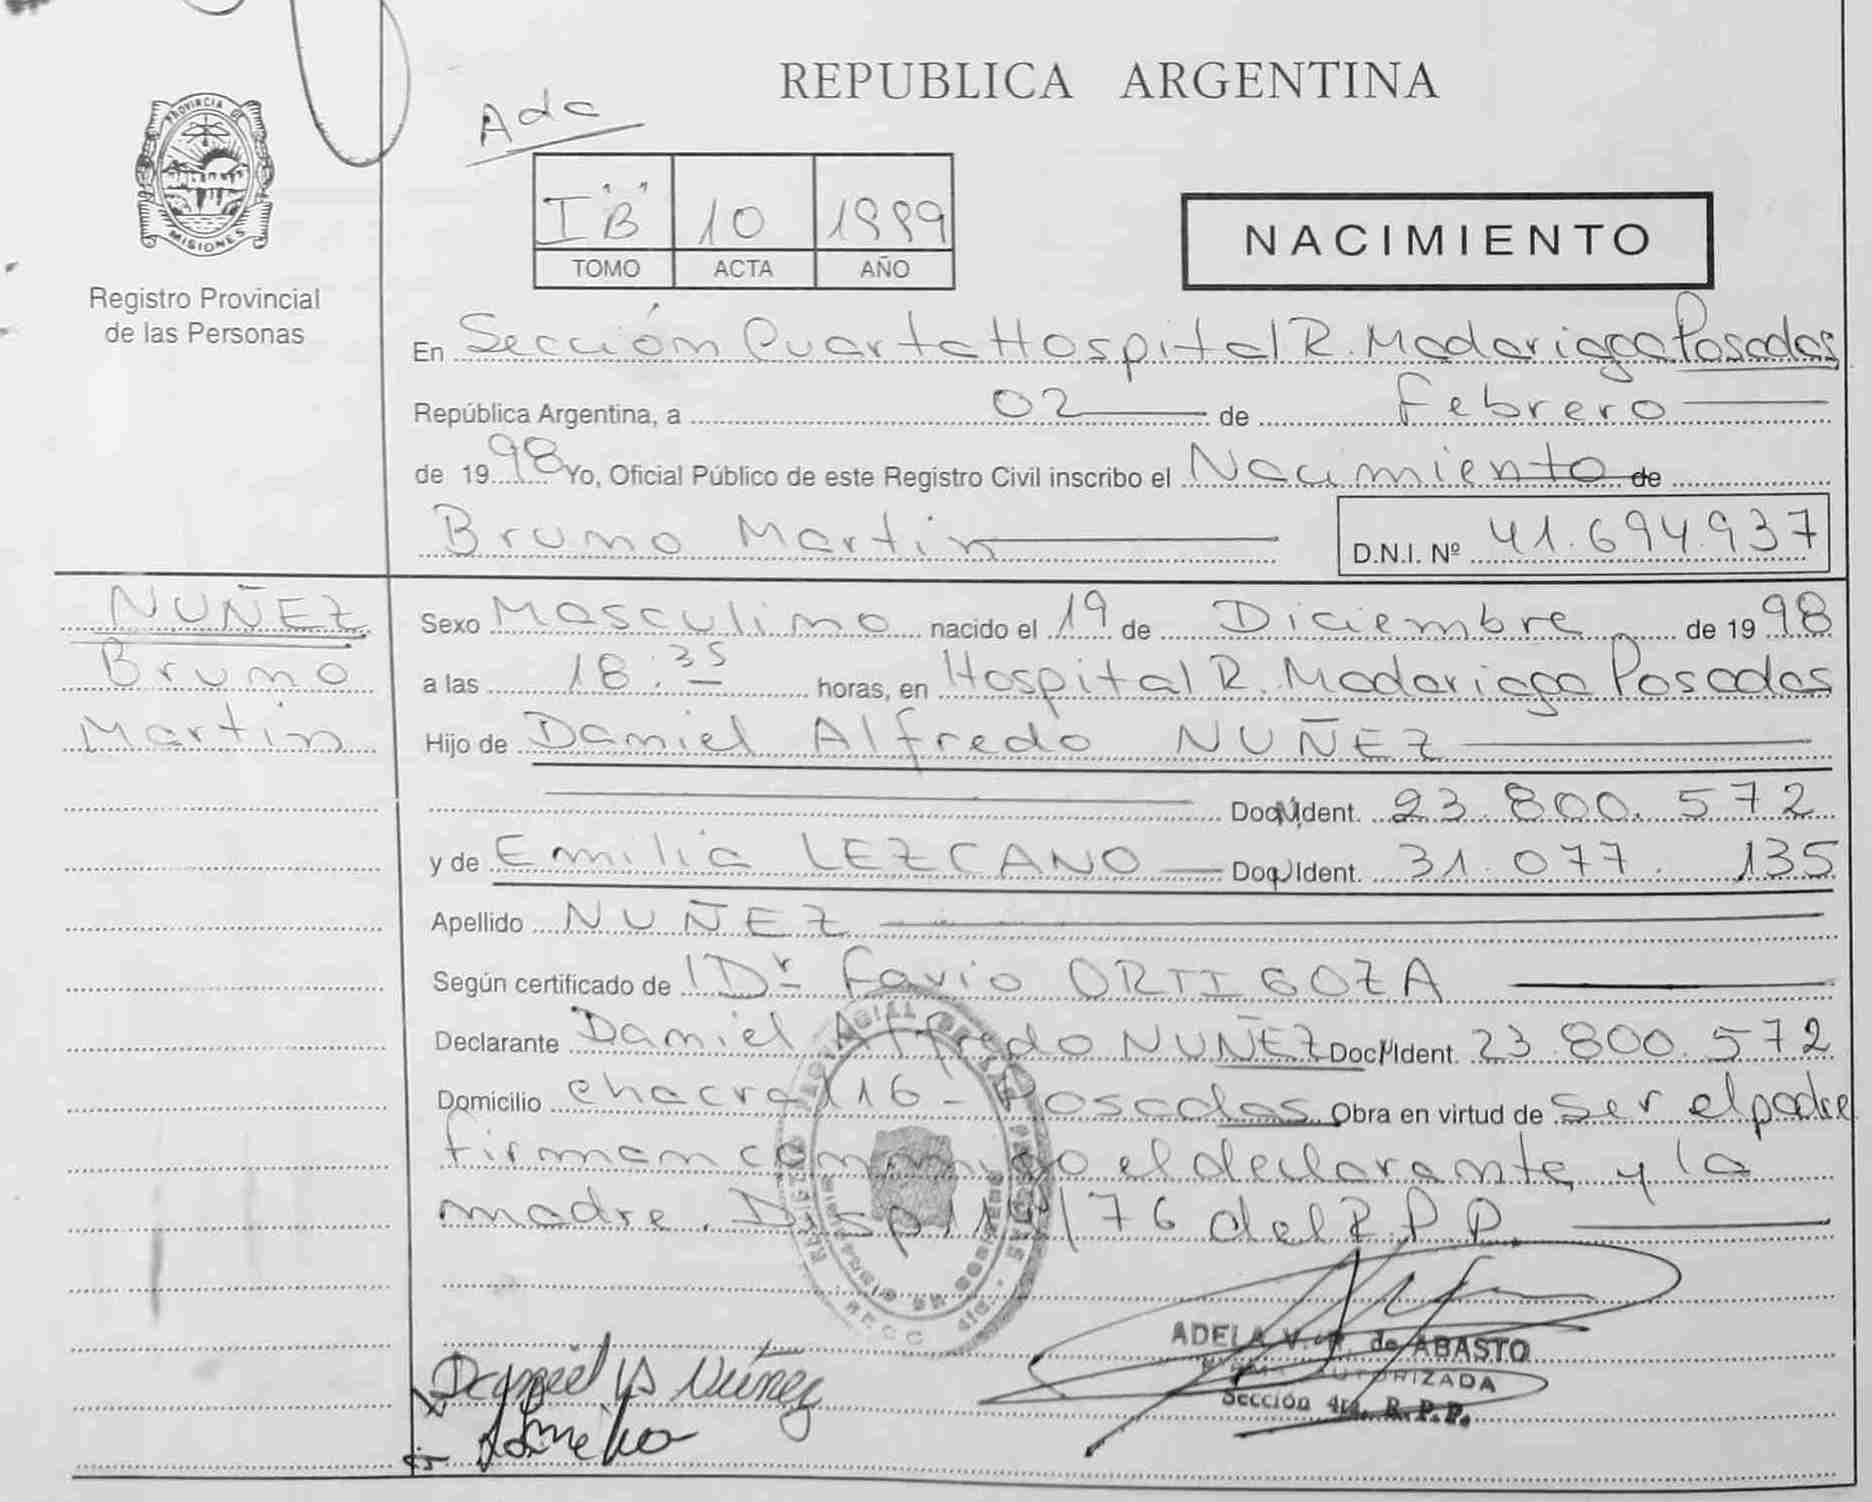 REPUBLICA ARGENTINA
PROVINCIA DE
MISIONES
Registro Provincial
de las Personas
Ada
I "B" 10 1999
TOMO ACTA AÑO
NACIMIENTO
En Sección Cuarta Hospital R. Madariaga Posadas
República Argentina, a 02 de Febrero
de 1998 Yo, Oficial Público de este Registro Civil inscribo el Nacimiento de
Bruno Martin D.N.I. Nº 41.694.937
NUÑEZ
Bruno
Martin
Sexo Masculino nacido el 19 de Diciembre de 1998
a las 18:35 horas, en Hospital R. Madariaga Posadas
Hijo de Daniel Alfredo NUÑEZ
Doc. Ident. 23.800.572
y de Emilia LEZCANO Doc. Ident. 31.077.135
Apellido NUÑEZ
Según certificado de Dr Favio ORTIGOZA
Declarante Daniel Alfredo NUÑEZ Doc. Ident. 23.800.572
Domicilio chacra 116 - Posadas Obra en virtud de ser el padre
firman conmigo el declarante y la
madre. Disp /76 del R.P.P.
ADELA V. de ABASTO
FIRMA AUTORIZADA
Sección 4ta. R.P.P.
Daniel Núñez